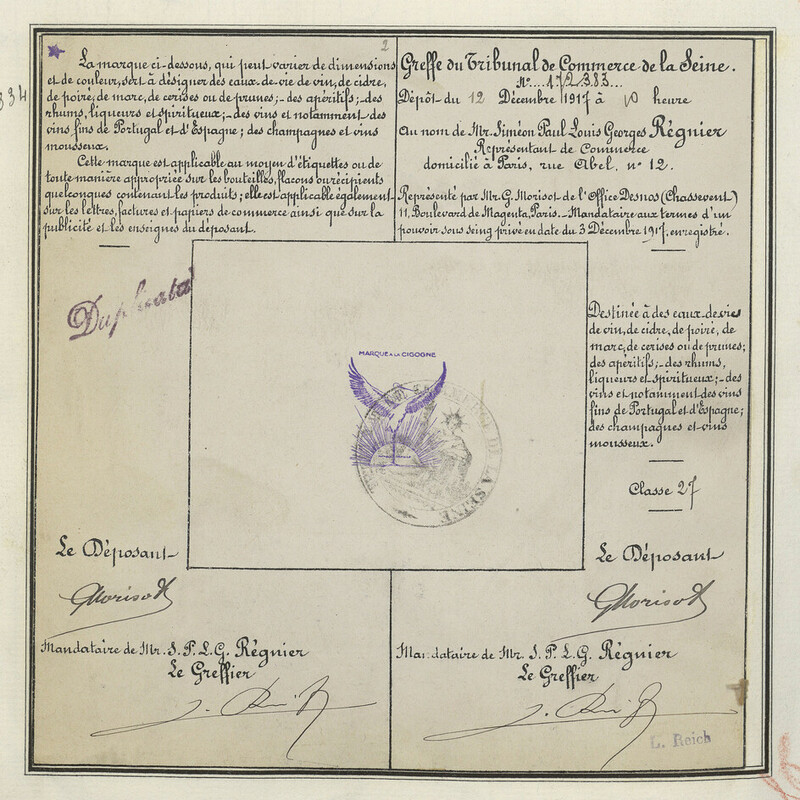 2
La marque ci-dessous, qui peut varier de dimensions
et de couleur, sert à désigner des eaux-de-vie de vin, de cidre,
de poiré, de marc, de cerises ou de prunes; - des apéritifs; - des
rhums, liqueurs et spiritueux; - des vins et notamment des
vins fins de Portugal et d'Espagne; des champagnes et vins
mousseux.
Cette marque est applicable au moyen d'étiquettes ou de
toute manière appropriée sur les bouteilles, flacons ou récipients
quelconques contenant les produits; elle est applicable également
sur les lettres, factures et papiers de commerce ainsi que sur la
publicité et les enseignes du déposant.
Greffe du Tribunal de Commerce de la Seine.
N°....172.383...
Dépôt du 12 Décembre 1917 à heure
Au nom de Mr. Siméon Paul Louis Georges Régnier
Représentant de Commerce
domicilié à Paris, rue Abel, n° 12.
Représenté par Mr. G. Morisot de l'Office Desnos (Chassevent)
11, Boulevard de Magenta, Paris. - Mandataire aux termes d'un
pouvoir sous seing privé en date du 3 Décembre 1917, enregistré.
Duplicata
MARQUE A LA CIGOGNE
DE LA SEINE
Destinée à des eaux-de-vies
de vin, de cidre, de poiré, de
marc, de cerises ou de prunes;
des apéritifs; - des rhums,
liqueurs et spiritueux; - des
vins et notamment des vins
fins de Portugal et d'Espagne;
des champagnes et vins
mousseux.
Classe 27
Le Déposant
GMorisot
Mandataire de Mr. S. P. L. G. Régnier
Le Greffier
Le Déposant
GMorisot
Mandataire de Mr. S. P. L. G. Régnier
Le Greffier
L. Reich